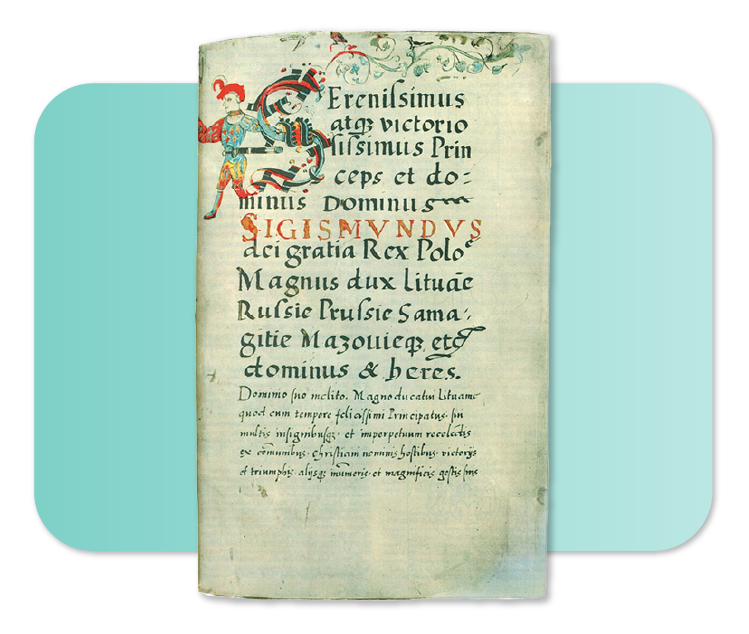 Serenissimus
atqꝫ victorio
sissimus Prin
ceps et do:
minus Dominus
SIGISMVNDVS
dei gratia Rex Poloe
Magnus dux Lituāe
Russie Prussie Sama:
gitie Mazouieqꝫ etc
dominus & heres.
Domino suo inclito. Magno ducatui Lituanie
quod cum tempore felicissimi Principatus sui
multis insignibusqꝫ et imperpetuum recolendis
ex cōmunibus Christiani nominis hostibus victorijs
et triumphis alijsqꝫ et magnificis gestis sine